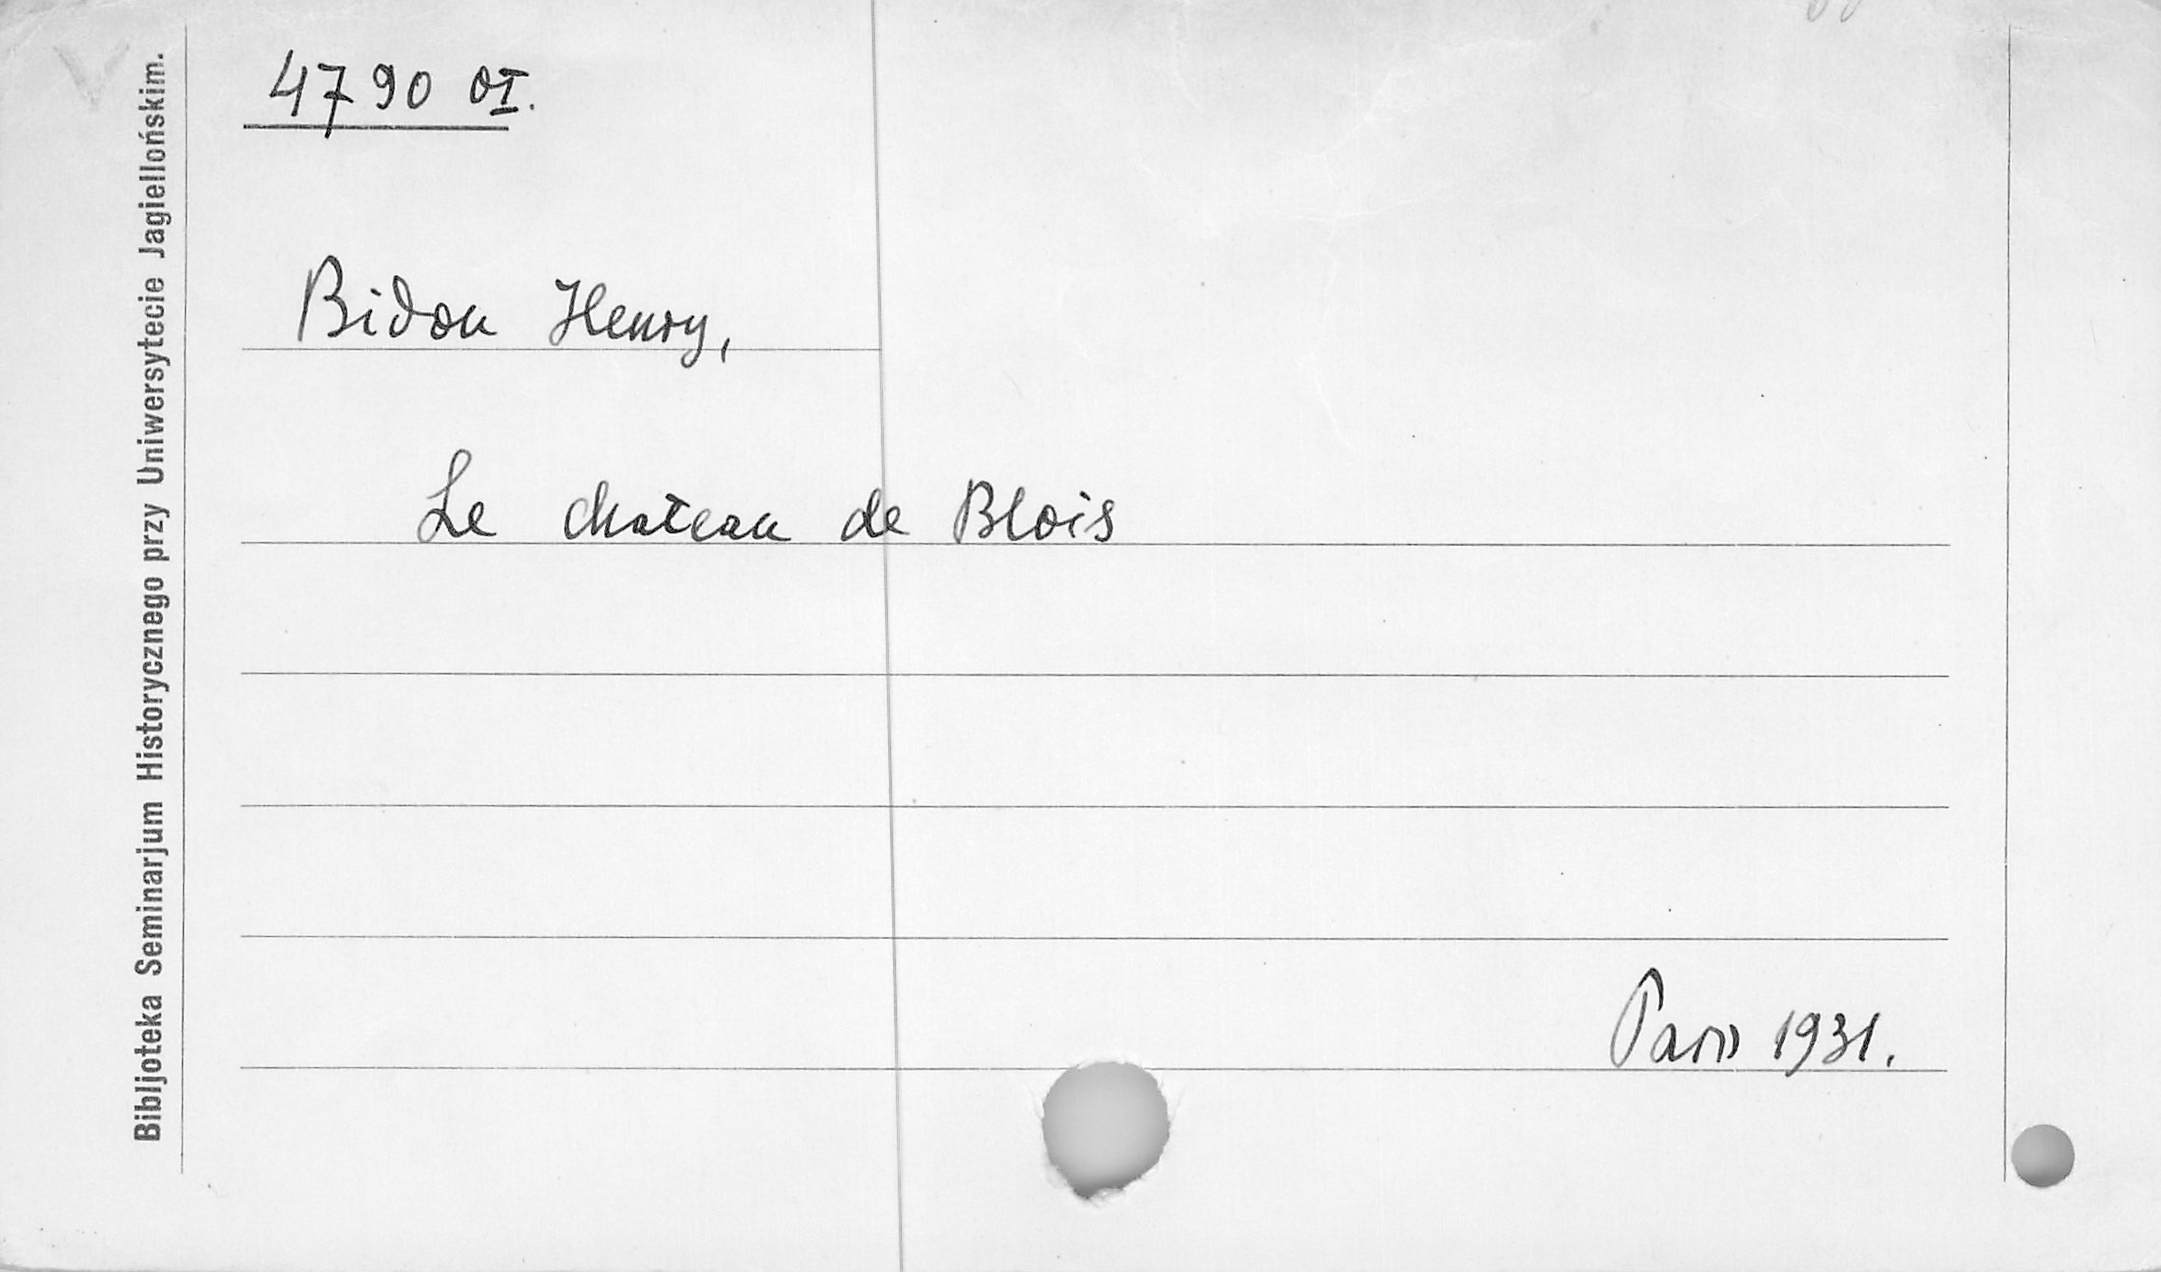 4790 OI.
Bidou Henry,
Le chateau de Blois
Paris 1931.
Bibljoteka Seminarjum Historycznego przy Uniwersytecie Jagiellońskim.